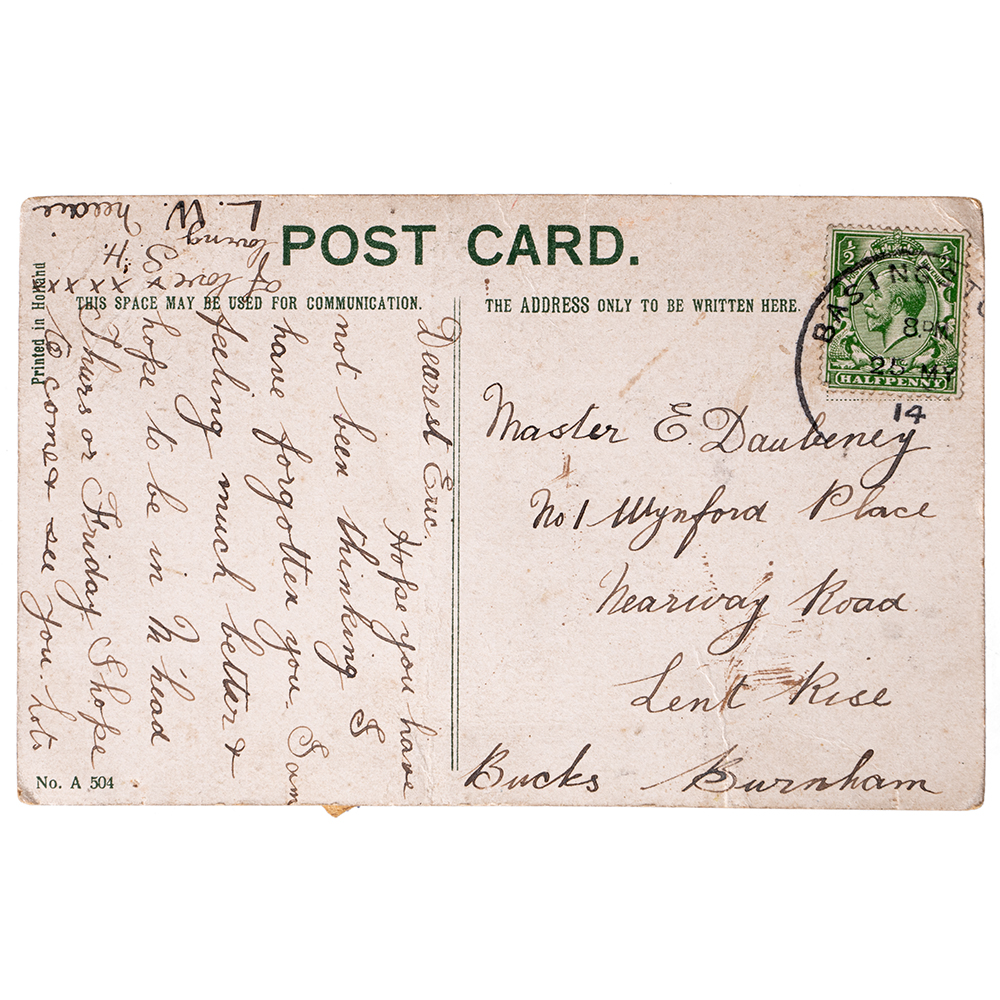 POST CARD.
THIS SPACE MAY BE USED FOR COMMUNICATION.
THE ADDRESS ONLY TO BE WRITTEN HERE.
Printed in Holland
No. A 504
Dearest Eric.
Hope you have
not been thinking I
have forgotten you. I am
feeling much better &
hope to be in M'head
Thurs or Friday I hope
to come & see you. Lots
of love
loving
L. W.
S. H.
x x x x x x
Master E Daubeney
No 1 Wynford Place
Nearway Road
Lent Rise
Burnham
Bucks
BASINGSTO
8 PM
25 MY
14
½ ½
HALFPENNY